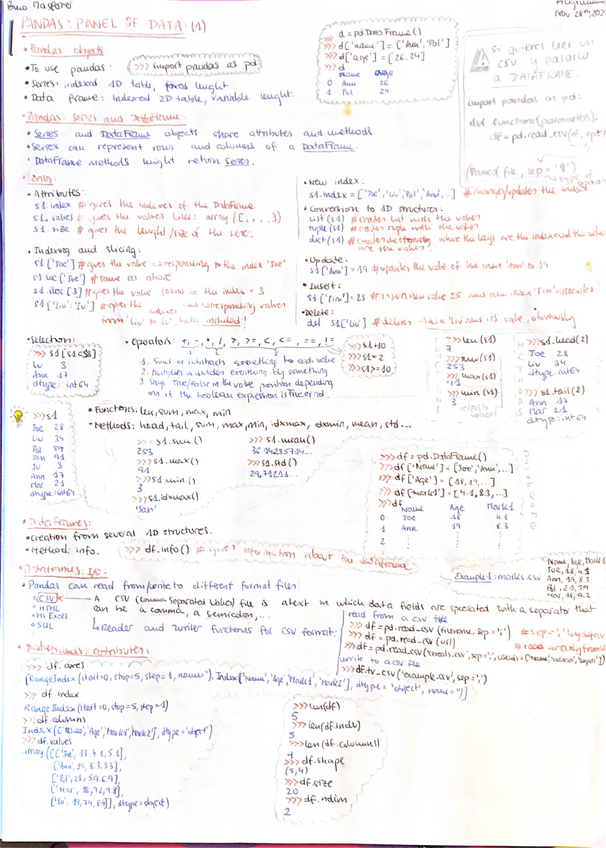 PANDAS: PANEL OF DATA (1)
Nov 28th, 202
• Pandas objects
• To use pandas: >>> import pandas as pd
• Series: indexed 1D table, fixed lenght
• Data frame: Indexed 2D table, variable lenght.
>>> d = pd.DataFrame()
>>> d['name'] = ['Ann','Pol']
>>> d['age'] = [26,24]
>>> d
Name Age
0 Ann 26
1 Pol 24
si quieres leer un
csv y pasarlo
a DATAFRAME.
import pandas as pd:
def function(parameters):
df = pd.read_csv(df, sep
(Name of file, sep = '
type of
• Pandas: Series and DataFrame:
• Series and DataFrame objects share attributes and methods.
• Series can represent rows and columns of a DataFrame.
• DataFrame methods might return Series.
• Series:
• Attributes:
s1.index # gives the indexes of the Dataframe
s1.values # gives the values like: array([, , , )
s1.size # gives the lenght/size of the serie.
• Indexing and slicing:
s1['Joe'] # gives the value corresponding to the index 'Joe'
s1.loc['Joe'] # same as above
s1.iloc[3] # gives the value found in the index = 3
s1['Liv':'Iu'] # gives the indexes and corresponding values
from 'Liv' to 'Iu', both included!
• New index:
s1.index = ['Joe','Liv','Pol','Ann',..] # changes/updates the index
• Conversion to 1D structures:
list(s1) # creates list with the values
tuple(s1) # creates tuple with the values
dict(s1) # creates dictionary where the keys are the index and the values
are the values.
• Update:
s1['Ann'] = 19 # updates the value of the index 'Ann' to 19
• Insert:
s1['Tim'] = 25 # inserts new value 25 and new index 'Tim' associated
• Delete:
del s1['Liv'] # deletes index 'Liv' and its value, obviously
• Selection:
>>> s1[s1<18]
Iu 3
Ann 17
dtype: int64
• Operators: +, -, *, /, >, >=, <, <=, ==, !=
1. Sums or subtracts something to each value
2. Multiplies or divides everything by something
3. Says True/False in the value position depending
on if the boolean expression is True or not.
>>> s1+10
>>> s1*2
>>> s1>=10
>>> len(s1)
7
>>> sum(s1)
253
>>> max(s1)
91
>>> min(s1)
3
>>> s1.head(2)
Joe 28
Liv 34
dtype: int64
>>> s1.tail(2)
Ann 17
Mar 21
dtype: int64
>>> s1
Joe 28
Liv 34
Pol 59
Jan 91
Iu 3
Ann 17
Mar 21
dtype: int64
• Functions: len, sum, max, min
• Methods: head, tail, sum, max, min, idxmax, idxmin, mean, std...
>>> s1.sum()
253
>>> s1.max()
91
>>> s1.min()
3
>>> s1.idxmax()
'Jan'
>>> s1.mean()
36.14285714...
>>> s1.std()
29.71211...
>>> df = pd.DataFrame()
>>> df['Name'] = [Joe','Ann',...]
>>> df['Age'] = [18,19,...]
>>> df['Mark1'] = [4.1,8.3,...]
>>> df
Name Age Mark1
0 Joe 18 4.1
1 Ann 19 8.3
• Dataframes:
• Creation from several 1D structures.
• Method: info. >>> df.info() # gives information about the dataframe
• Dataframes: I/O:
Example1: marks.csv
Name, Age, Mark1
Joe, 18, 4.1
Ann, 19, 8.3
Pol, 21, 5.9
• Pandas can read from/write to different format files:
• CSV
• HTML
• MS Excel
• SQL
A CSV (Comma Separated Values) file is a text in which data fields are separated with a separator that
can be a comma, a semicolon, ...
Reader and Writer functions for CSV format:
read from a csv file
>>> df = pd.read_csv (filename, sep=';')
>>> df = pd.read_csv (url)
write to a csv file
>>> df.to_csv('example.csv', sep=';')
• Dataframes, attributes:
>>> df.axes
[RangeIndex(start=0, stop=5, step=1, name=''), Index['Name','Age','Mark1','Mark2'], dtype='object', name='')]
>>> df.index
RangeIndex(start=0, stop=5, step=1)
>>> df.columns
Index(['Name','Age','Mark1','Mark2'], dtype='object')
>>> df.values
array([['Joe', 18, 4.1, 5.1],
['Ann', 19, 8.3, 3.3],
['Pol', 21, 5.9, 6.9],
['Mar', 18, 9.2, 9.8],
['Iu', 19, 7.4, 8.9]], dtype=object)
>>> len(df)
5
>>> len(df.index)
5
>>> len(df.columns)
4
>>> df.shape
(5,4)
>>> df.size
20
>>> df.ndim
2